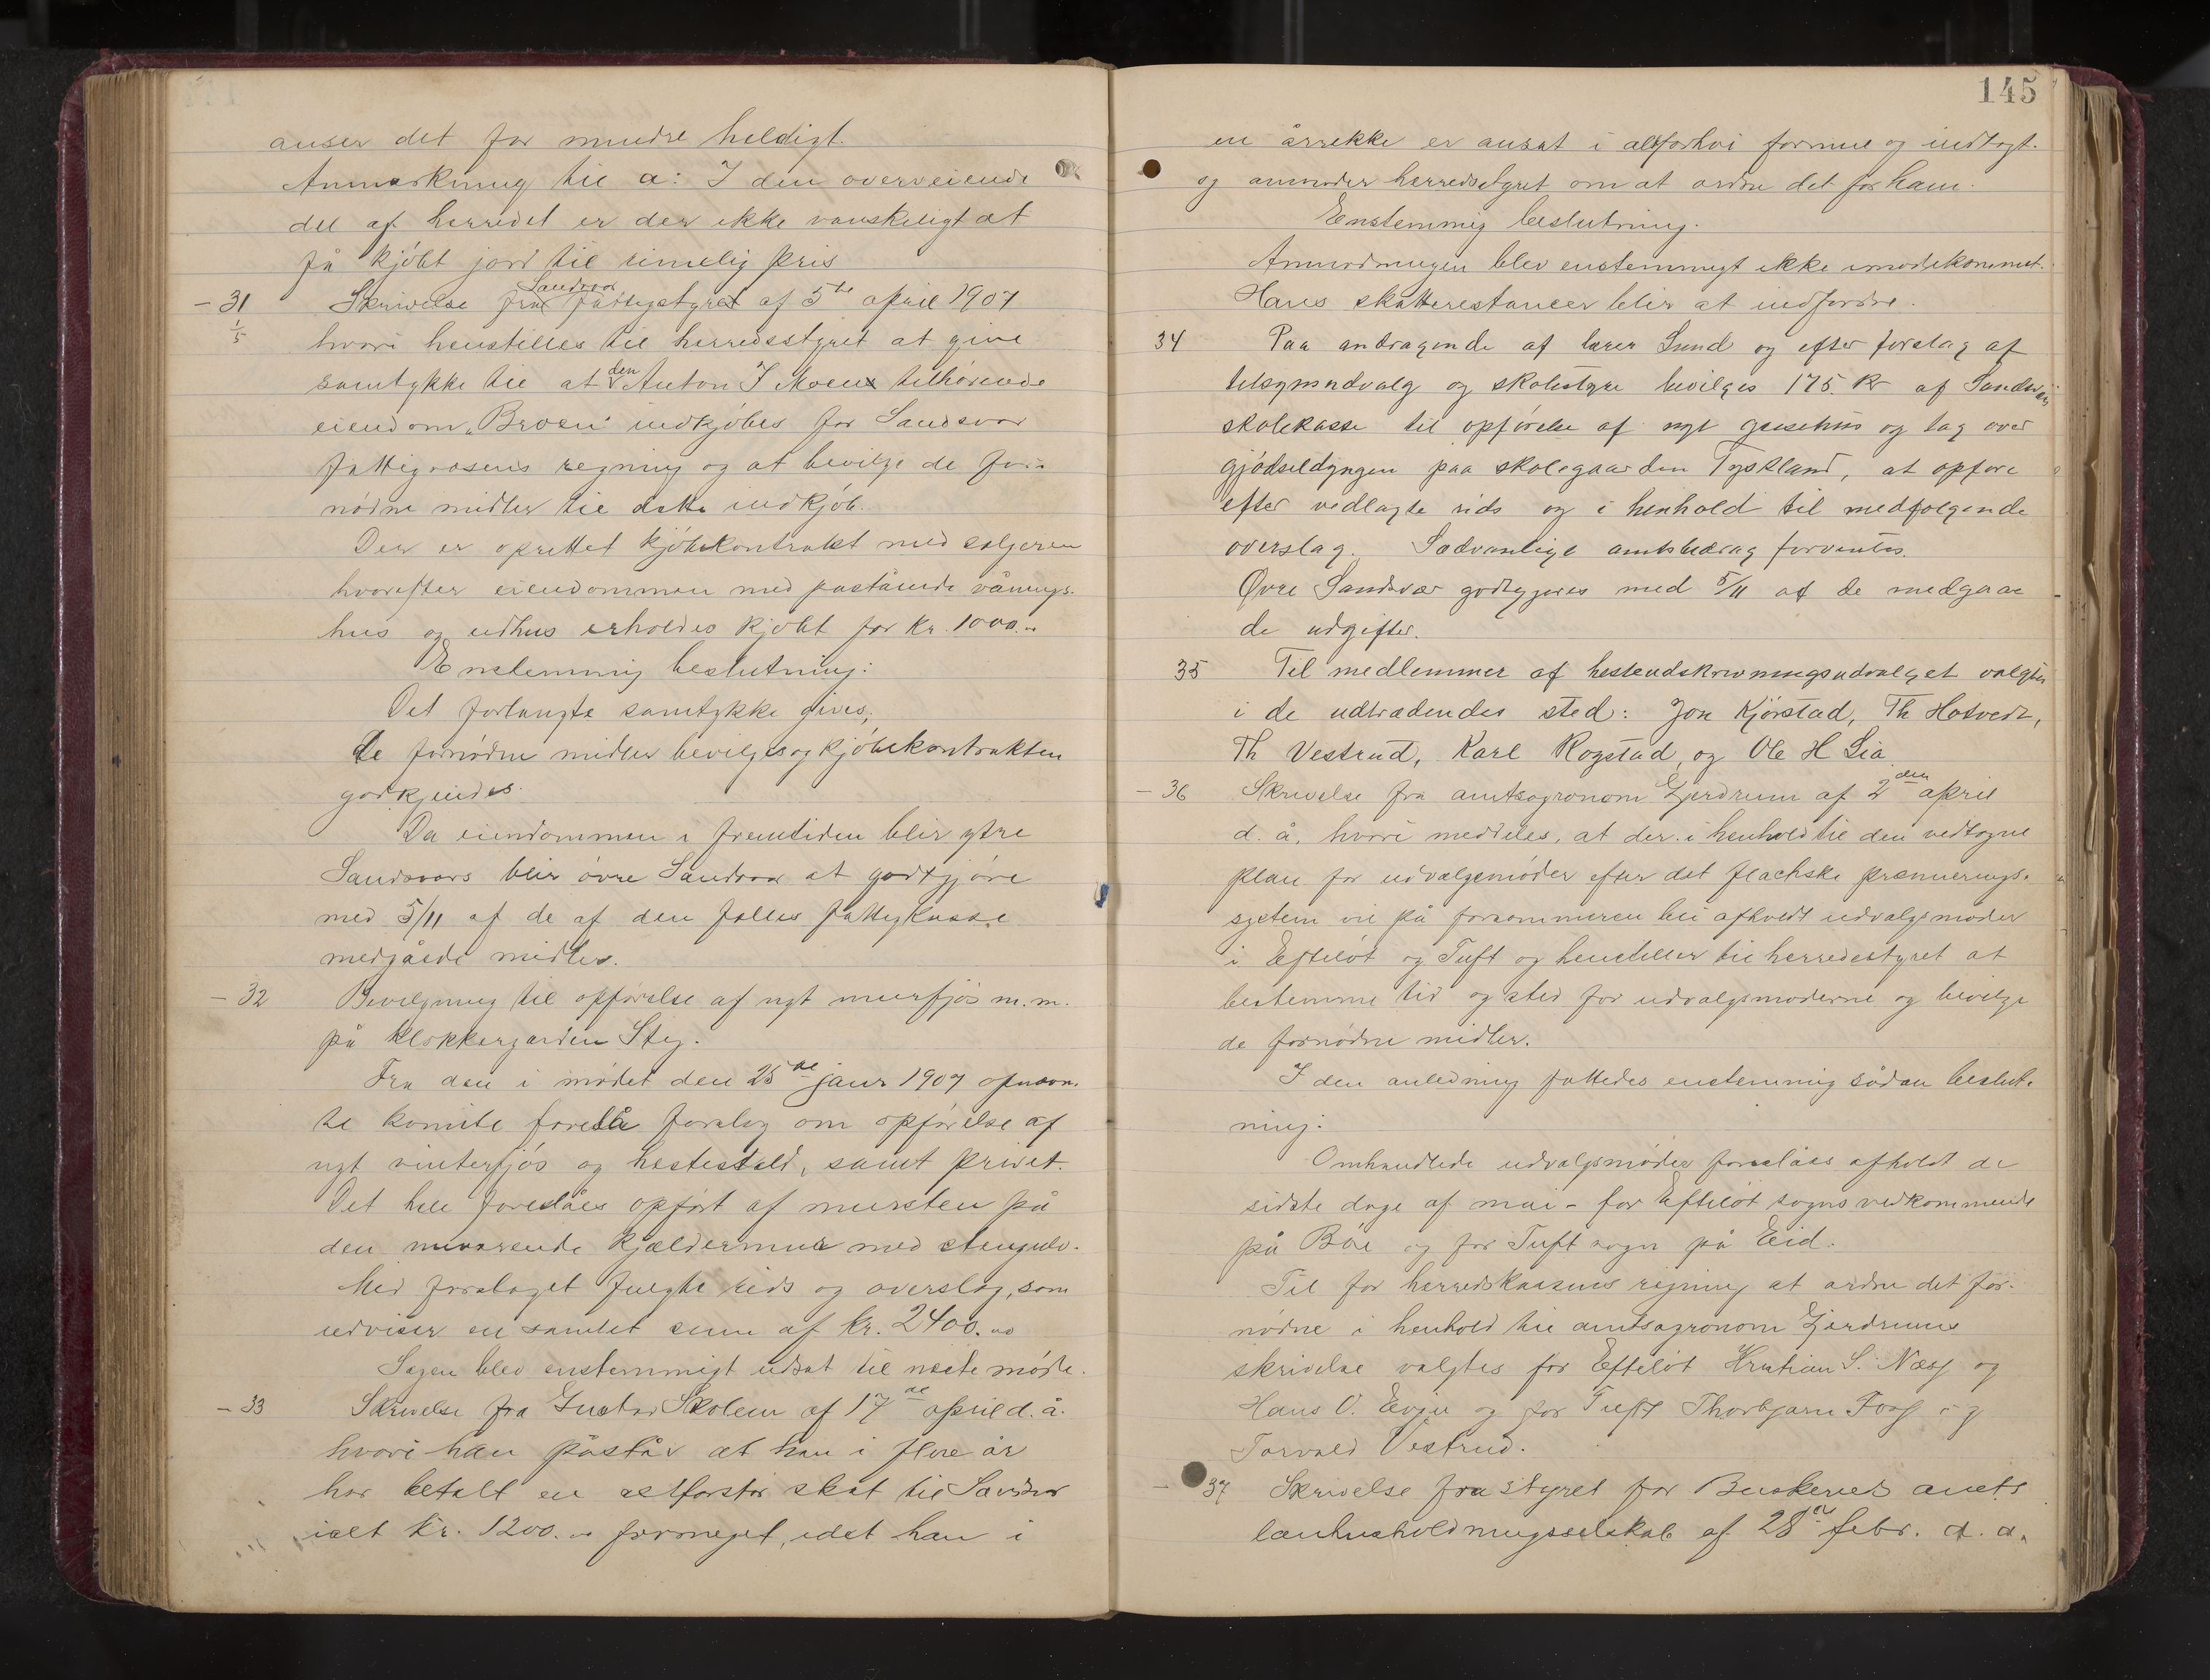 anser det for mindre heldigt.
Anmerkning til a: I den overveiende
del af herredet er der ikke vanskeligt at
få kjöbt jord til rimelig pris
- 31 Skrivelse fra Sandsvær fattigstyret af 5te april 1907
1/5 hvori henstilles til herredsstyret at give
samtykke til at den Anton J Moens tilhörende
eiendom "Broen" indkjöbes for Sandsvær
fattigvæsens regning og at bevilge de for-
nödne midler til dette indkjöb.
Der er oprettet kjöbekontrakt med sælgeren
hvorefter eiendommen med påstående vånings-
hus og udhus erholdes kjöbt for kr. 1000.00
Enstemmig beslutning:
Det forlangte samtykke gives;
de fornödne midler bevilges og kjöbekontrakten
godkjendes.
Da eiendommen i fremtiden blir ytre
Sandsværs blir övre Sandsvær at godtgjöre
med 5/11 af de af den fælles fattigkasse
medgåede midler.
- 32 Bevilgning til opförelse af nyt murfjös m.m.
på klokkergarden Steg.
Fra den i mödet den 25de janr 1907 opnævn-
te komite forelå forslag om opförelse af
nyt vinterfjös og hestestald, samt privet.
Det hele foreslåes opfört af mursten på
den nuværende kjældermur med stengulv.
Med forslaget fulgte rids og overslag, som
udviser en samlet sum af kr. 2400.00
Sagen blev enstemmigt udsat til næste möde.
- 33 Skrivelse fra Gustav Skolem af 17de april d.å.
hvori han påstår at han i flere år
har betalt en altforstor skat til Sandsvær
ialt kr. 1200.00 formeget, idet han i
145
en årrekke er ansat i altforhöi formue og indtægt.
og anmoder herredsstyret om at ordne det for ham.
Enstemmig beslutning.
Anmodningen blev enstemmigt ikke imödekommet.
Hans skatterestancer blir at indfordre.
34 Paa andragende af lærer Lund og efter forslag af
tilsynsudvalg og skolestyre bevilges 175 kr af Sandsværs
skolekasse til opförelse af nyt grisehus og tag over
gjödseldyngen paa skolegaarden Tyskland, at opföre
efter vedlagte rids og i henhold til medfølgende
overslag. Sædvanlige amtsbidrag forventes.
Øvre Sandsvær godtgjøres med 5/11 af de medgaae-
de udgifter.
35 Til medlemmer af hesteudskrivningsudvalget valgtes
i de udtrædendes sted: Jon Kjörstad, Th Hotvedt,
Th Vestrud, Karl Rogstad, og Ole H Lia
- 36 Skrivelse fra amtsagronom Gjerdrum af 2den april
d. å. hvori meddeles, at der i henhold til den vedtagne
plan for udvalgsmöder efter det flachske præmierings-
system vil på forsommeren bli afholdt udvalgsmöder
i Efteløt og Tuft og henstiller til herredsstyret at
bestemme tid og sted for udvalgsmöderne og bevilge
de fornödne midler.
I den anledning fattedes enstemmig sådan beslut-
ning:
Omhandlede udvalgsmöder foreslåes afholdt de
sidste dage af mai - for Efteløt sogns vedkommende
på Böe og for Tuft sogn på Eid.
Til for herredskassens regning at ordne det for-
nödne i henhold til amtsagronom Gjerdrums
skrivelse valgtes for Efteløt Kristian S. Næss og
Hans O. Evju og for Tuft Thorbjørn Foss og
Torvald Vestrud.
- 37 Skrivelse fra styret for Buskerud amts
landhusholdningsselskab af 28de febr. d. a.